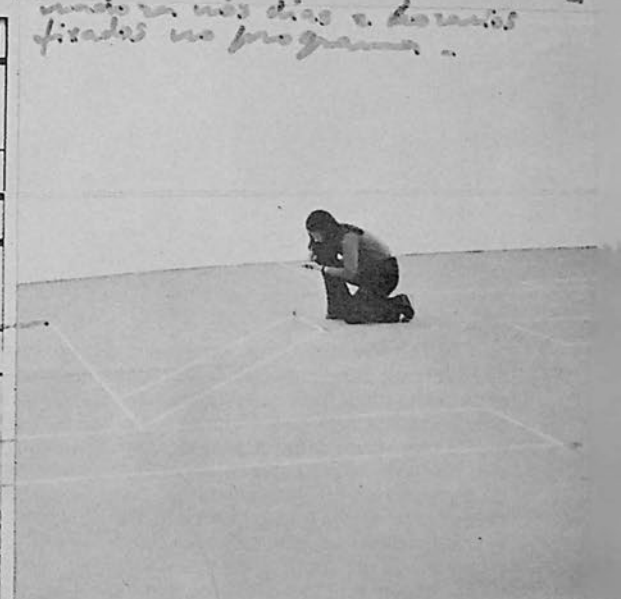 nos dias e horarios
fixados no programa -